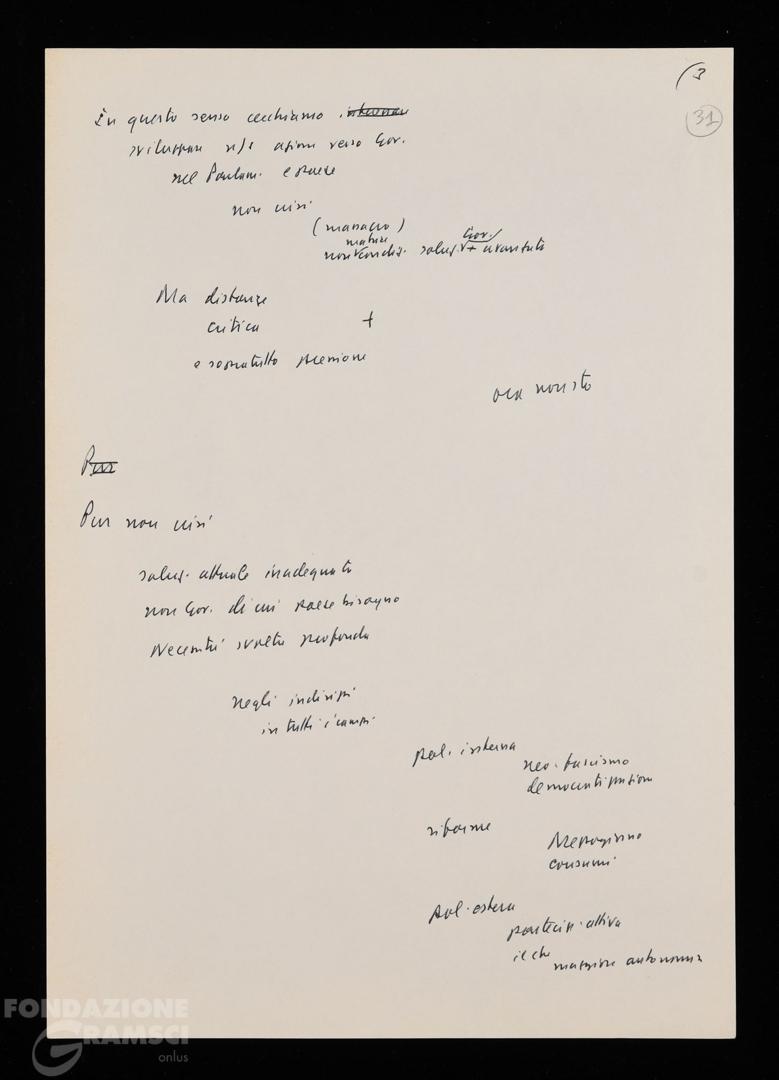 (3
31
In questo senso cerchiamo
sviluppare ns/ azione verso Gov.
nel Parlam. e paese
non crisi
(manacro)
mature Gov.
non condiz. soluz. + avanzate
Ma distanze
critica +
e sopratutto pressione
ora non sto
Pur
Pur non crisi
soluz. attuale inadeguata
non Gov. di cui paese bisogno
Necessità svolta profonda
negli indirizzi
in tutti i campi
pol. interna
neo-fascismo
democratizzazione
riforme
Mezzogiorno
consumi
pol. estera
partecip. attiva
il che
maggiore autonomia
FONDAZIONE
GRAMSCI
onlus